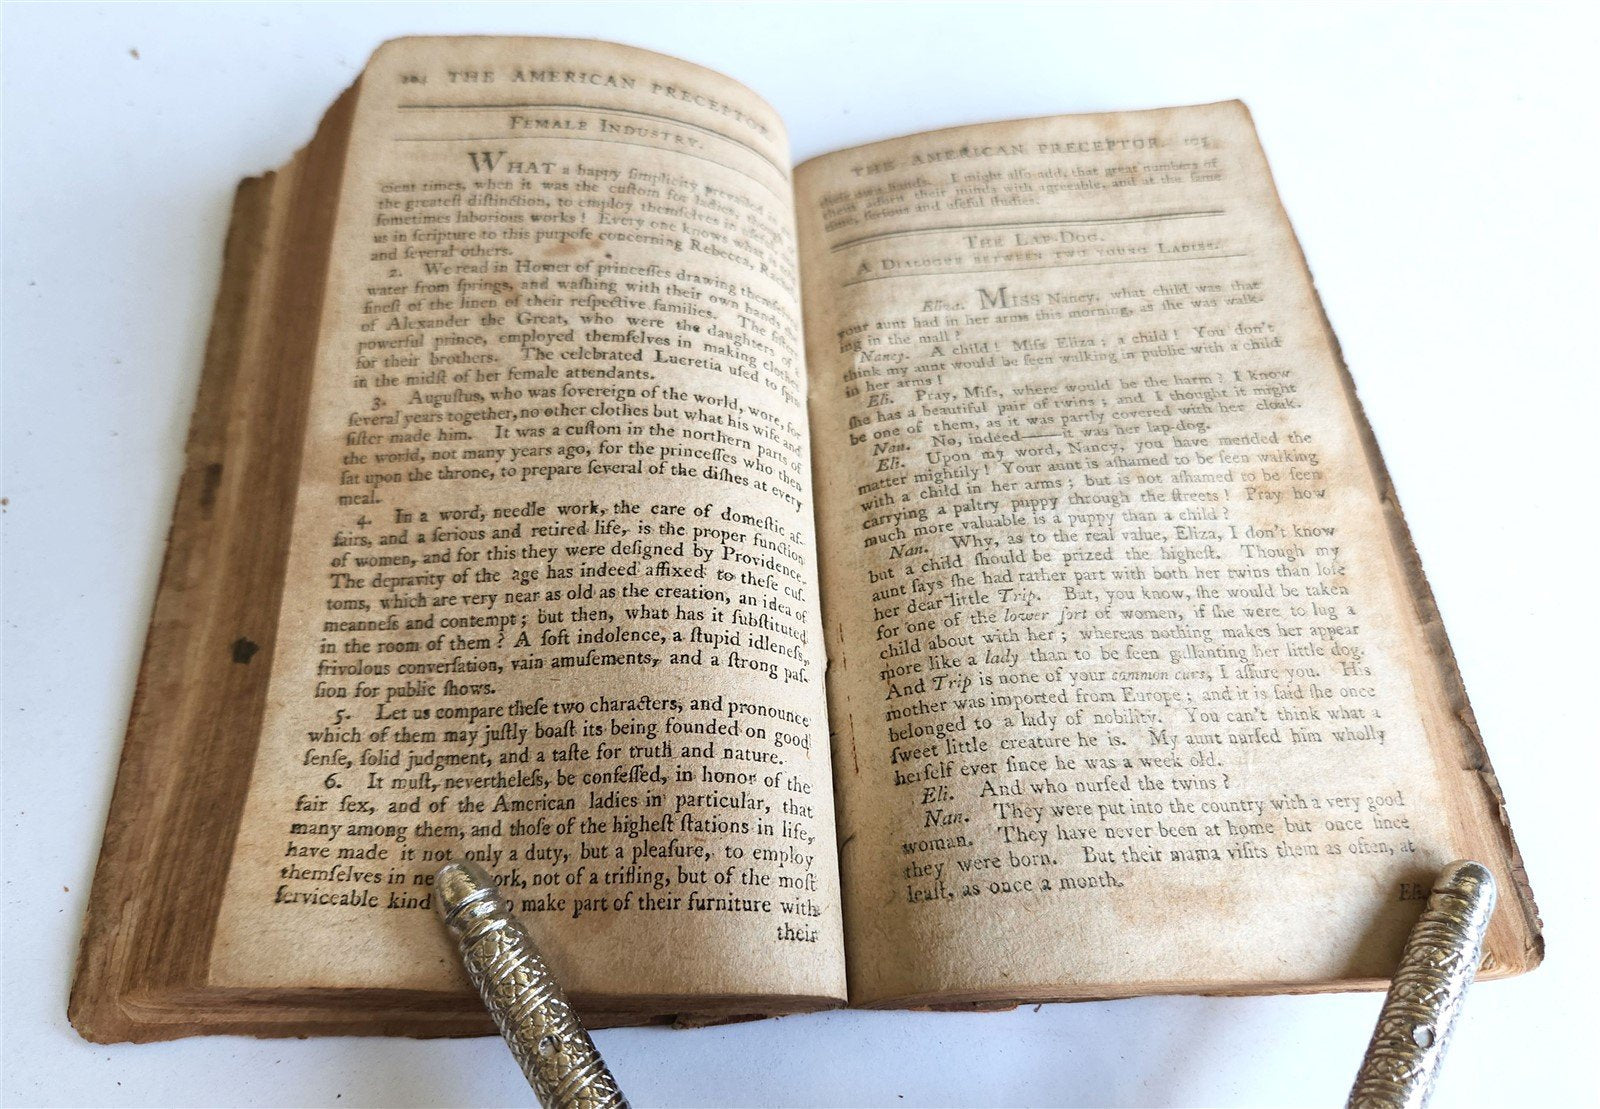 104 THE AMERICAN PRECEPTOR
FEMALE INDUSTRY.
WHAT a happy ſimplicity prevailed in
cient times, when it was the cuſtom for ladies, though
the greateſt diſtinction, to employ themſelves in uſeful
ſometimes laborious works! Every one knows what is
us in ſcripture to this purpoſe concerning Rebecca, Rachel
and ſeveral others.
2. We read in Homer of princeſſes drawing themſelves
water from ſprings, and waſhing with their own hands the
fineſt of the linen of their reſpective families. The ſiſters
of Alexander the Great, who were the daughters of a
powerful prince, employed themſelves in making clothes
for their brothers. The celebrated Lucretia uſed to ſpin
in the midſt of her female attendants.
3. Auguſtus, who was ſovereign of the world, wore, for
ſeveral years together, no other clothes but what his wife and
ſiſter made him. It was a cuſtom in the northern parts of
the world, not many years ago, for the princeſſes who then
ſat upon the throne, to prepare ſeveral of the diſhes at every
meal.
4. In a word, needle work, the care of domeſtic af-
fairs, and a ſerious and retired life, is the proper function
of women, and for this they were deſigned by Providence.
The depravity of the age has indeed affixed to theſe cuſ-
toms, which are very near as old as the creation, an idea of
meanneſs and contempt; but then, what has it ſubſtituted
in the room of them? A ſoft indolence, a ſtupid idleneſs,
frivolous converſation, vain amuſements, and a ſtrong paſ-
ſion for public ſhows.
5. Let us compare theſe two characters, and pronounce
which of them may juſtly boaſt its being founded on good
ſenſe, ſolid judgment, and a taſte for truth and nature.
6. It muſt, nevertheleſs, be confeſſed, in honor of the
fair ſex, and of the American ladies in particular, that
many among them, and thoſe of the higheſt ſtations in life,
have made it not only a duty, but a pleaſure, to employ
themſelves in ne ork, not of a trifling, but of the moſt
ſerviceable kind make part of their furniture with
their
THE AMERICAN PRECEPTOR. 105
their own hands. I might alſo add, that great numbers of
them adorn their minds with agreeable, and at the ſame
time, ſerious and uſeful ſtudies.
THE LAP-DOG.
A DIALOGUE BETWEEN TWO YOUNG LADIES.
Eliza. MISS Nancy, what child was that
your aunt had in her arms this morning, as ſhe was walk-
ing in the mall?
Nancy. A child! Miſs Eliza; a child! You don't
think my aunt would be ſeen walking in public with a child
in her arms!
Eli. Pray, Miſs, where would be the harm? I know
ſhe has a beautiful pair of twins; and I thought it might
be one of them, as it was partly covered with her cloak.
Nan. No, indeed——it was her lap-dog.
Eli. Upon my word, Nancy, you have mended the
matter mightily! Your aunt is aſhamed to be ſeen walking
with a child in her arms; but is not aſhamed to be ſeen
carrying a paltry puppy through the ſtreets! Pray how
much more valuable is a puppy than a child?
Nan. Why, as to the real value, Eliza, I don't know
but a child ſhould be prized the higheſt. Though my
aunt ſays ſhe had rather part with both her twins than loſe
her dear little Trip. But, you know, ſhe would be taken
for one of the lower ſort of women, if ſhe were to lug a
child about with her; whereas nothing makes her appear
more like a lady than to be ſeen gallanting her little dog.
And Trip is none of your common curs, I aſſure you. His
mother was imported from Europe; and it is ſaid ſhe once
belonged to a lady of nobility. You can't think what a
ſweet little creature he is. My aunt nurſed him wholly
herſelf ever ſince he was a week old.
Eli. And who nurſed the twins?
Nan. They were put into the country with a very good
woman. They have never been at home but once ſince
they were born. But their mama viſits them as often, at
leaſt, as once a month.
Eli.